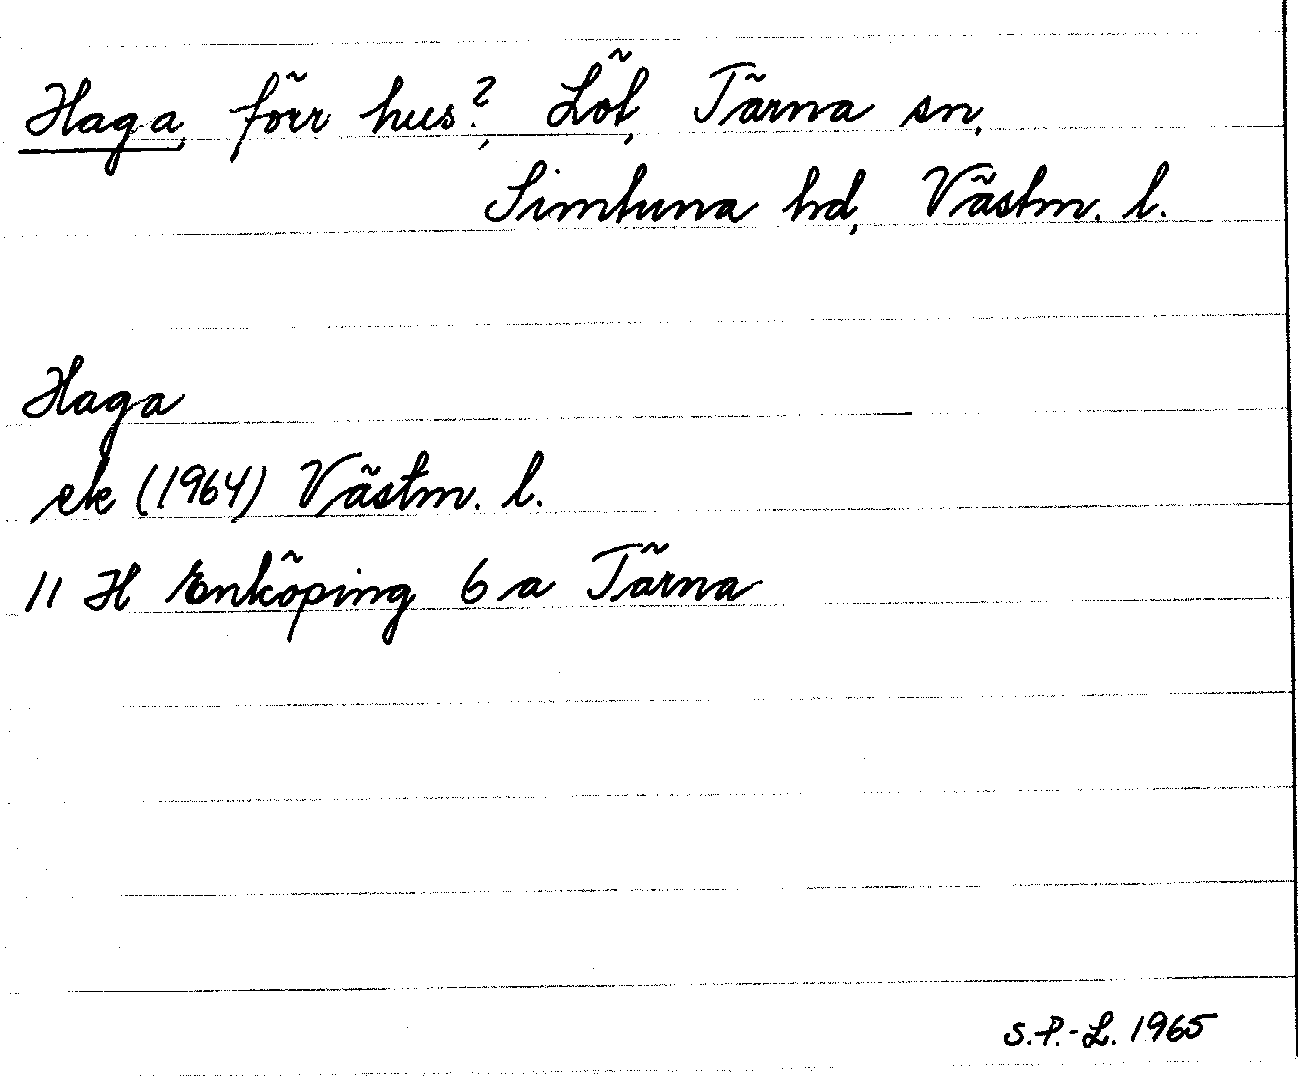 Haga, förr hus?, Löt, Tärna sn,
Simtuna hd, Västm. l.
Haga
ek (1964) Västm. l.
11 H Enköping 6 a Tärna
S.P.-L. 1965